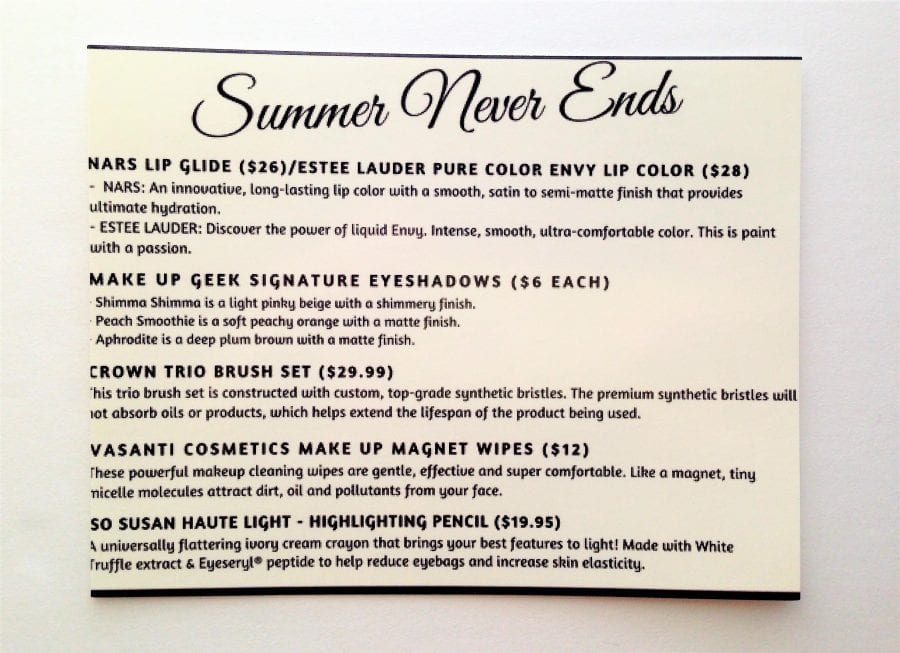 Summer Never Ends
NARS LIP GLIDE ($26)/ESTEE LAUDER PURE COLOR ENVY LIP COLOR ($28)
- NARS: An innovative, long-lasting lip color with a smooth, satin to semi-matte finish that provides
ultimate hydration.
- ESTEE LAUDER: Discover the power of liquid Envy. Intense, smooth, ultra-comfortable color. This is paint
with a passion.
MAKE UP GEEK SIGNATURE EYESHADOWS ($6 EACH)
- Shimma Shimma is a light pinky beige with a shimmery finish.
- Peach Smoothie is a soft peachy orange with a matte finish.
- Aphrodite is a deep plum brown with a matte finish.
CROWN TRIO BRUSH SET ($29.99)
This trio brush set is constructed with custom, top-grade synthetic bristles. The premium synthetic bristles will
not absorb oils or products, which helps extend the lifespan of the product being used.
VASANTI COSMETICS MAKE UP MAGNET WIPES ($12)
These powerful makeup cleaning wipes are gentle, effective and super comfortable. Like a magnet, tiny
micelle molecules attract dirt, oil and pollutants from your face.
SO SUSAN HAUTE LIGHT - HIGHLIGHTING PENCIL ($19.95)
A universally flattering ivory cream crayon that brings your best features to light! Made with White
Truffle extract & Eyeseryl® peptide to help reduce eyebags and increase skin elasticity.